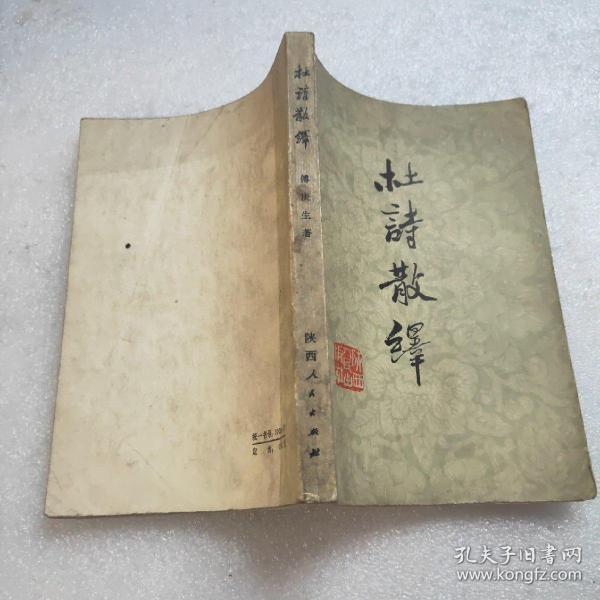 杜詩散繹
杜詩散繹
傅庚生著
陕西人民出版社
统一书号:
定价:
孔夫子旧书网
www.kongfz.com